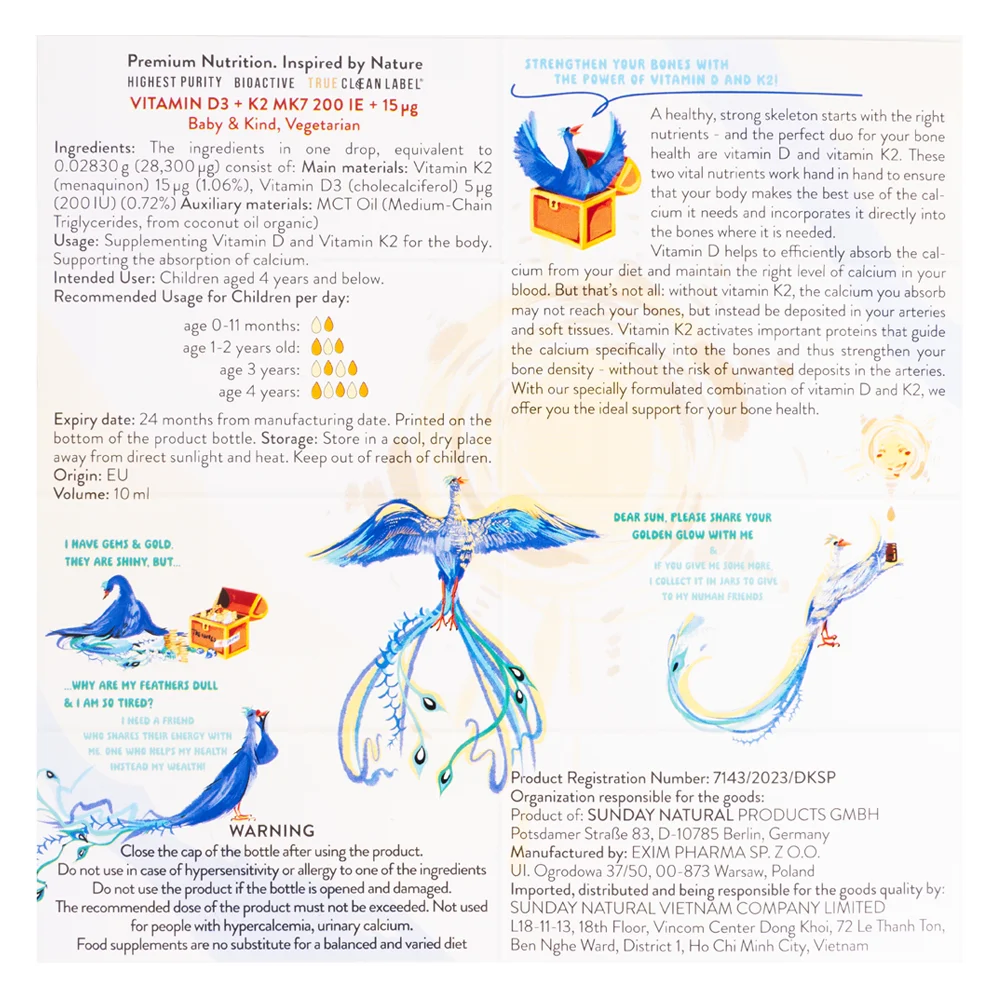 Premium Nutrition. Inspired by Nature
HIGHEST PURITY BIOACTIVE TRUE CLEAN LABEL®
VITAMIN D3 + K2 MK7 200 IE + 15 µg
Baby & Kind, Vegetarian
Ingredients: The ingredients in one drop, equivalent to
0.02830 g (28,300 µg) consist of: Main materials: Vitamin K2
(menaquinon) 15 µg (1.06%), Vitamin D3 (cholecalciferol) 5 µg
(200 IU) (0.72%) Auxiliary materials: MCT Oil (Medium-Chain
Triglycerides, from coconut oil organic)
Usage: Supplementing Vitamin D and Vitamin K2 for the body.
Supporting the absorption of calcium.
Intended User: Children aged 4 years and below.
Recommended Usage for Children per day:
age 0-11 months:
age 1-2 years old:
age 3 years:
age 4 years:
Expiry date: 24 months from manufacturing date. Printed on the
bottom of the product bottle. Storage: Store in a cool, dry place
away from direct sunlight and heat. Keep out of reach of children.
Origin: EU
Volume: 10 ml
I HAVE GEMS & GOLD.
THEY ARE SHINY, BUT...
...WHY ARE MY FEATHERS DULL
& I AM SO TIRED?
I NEED A FRIEND
WHO SHARES THEIR ENERGY WITH
ME ONE WHO HELPS MY HEALTH
INSTEAD MY WEALTH!
WARNING
Close the cap of the bottle after using the product.
Do not use in case of hypersensitivity or allergy to one of the ingredients
Do not use the product if the bottle is opened and damaged.
The recommended dose of the product must not be exceeded. Not used
for people with hypercalcemia, urinary calcium.
Food supplements are no substitute for a balanced and varied diet
STRENGTHEN YOUR BONES WITH
THE POWER OF VITAMIN D AND K2!
A healthy, strong skeleton starts with the right
nutrients - and the perfect duo for your bone
health are vitamin D and vitamin K2. These
two vital nutrients work hand in hand to ensure
that your body makes the best use of the cal-
cium it needs and incorporates it directly into
the bones where it is needed.
Vitamin D helps to efficiently absorb the cal-
cium from your diet and maintain the right level of calcium in your
blood. But that's not all: without vitamin K2, the calcium you absorb
may not reach your bones, but instead be deposited in your arteries
and soft tissues. Vitamin K2 activates important proteins that guide
the calcium specifically into the bones and thus strengthen your
bone density - without the risk of unwanted deposits in the arteries.
With our specially formulated combination of vitamin D and K2, we
offer you the ideal support for your bone health.
DEAR SUN, PLEASE SHARE YOUR
GOLDEN GLOW WITH ME
&
IF YOU GIVE ME SOME MORE,
I COLLECT IT IN JARS TO GIVE
TO MY HUMAN FRIENDS
Product Registration Number: 7143/2023/DKSP
Organization responsible for the goods:
Product of: SUNDAY NATURAL PRODUCTS GMBH
Potsdamer Straße 83, D-10785 Berlin, Germany
Manufactured by: EXIM PHARMA SP. Z O.O.
Ul. Ogrodowa 37/50, 00-873 Warsaw, Poland
Imported, distributed and being responsible for the goods quality by:
SUNDAY NATURAL VIETNAM COMPANY LIMITED
L18-11-13, 18th Floor, Vincom Center Dong Khoi, 72 Le Thanh Ton,
Ben Nghe Ward, District 1, Ho Chi Minh City, Vietnam